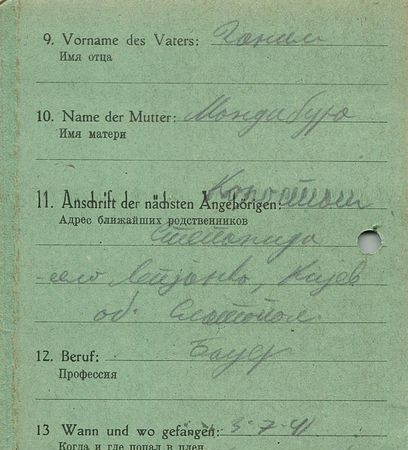 9. Vorname des Vaters:
Имя отца
10. Name der Mutter: Мондабуро
Имя матери
11. Anschrift der nächsten Angehörigen:
Адрес ближайших родственников
Степанида
село Киев
об.
12. Beruf: Бауер
Профессия
13 Wann und wo gefangen: 3-7-41
Когда и где попал в плен